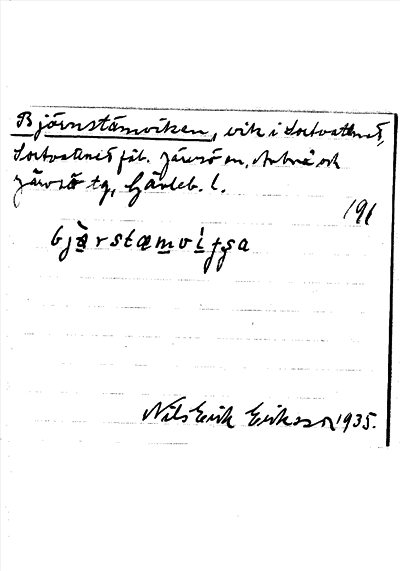 Björnstämviken, vik i Sortvatnet,
Sortvatnet fäb. Järvsö sn, Arbrå och
Järvsö tg, Gävleb. l.
191
bjàrstæmvìʃsa
Nils Erik Eriksson 1935.